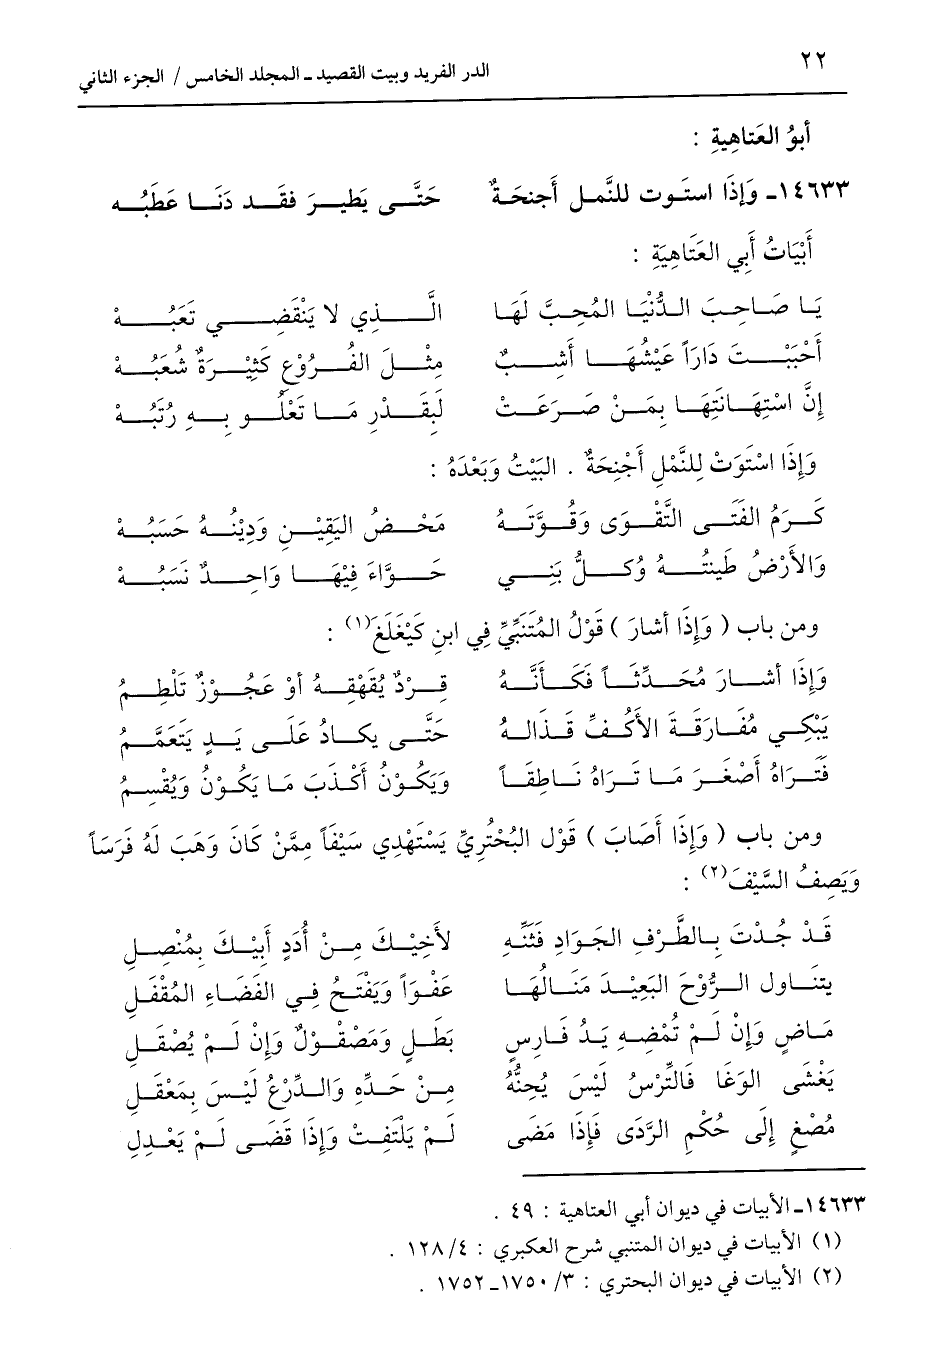 ٢٢ الدر الفريد وبيت القصيد ـ المجلد الخامس / الجزء الثاني
أبوُ العَتاهِيةِ :
١٤٦٣٣ـ وَإذَا استَوت للنَّمل أَجنحَةٌ حَتَّى يَطيرَ فقَد دَنَا عَطَبُه
أَبْيَاتُ أَبِي العَتَاهِيَةِ :
يَا صَاحِبَ الدُّنْيَا المُحِبَّ لَهَا الَّذِي لا يَنْقَضِي تَعَبُهْ
أَحْبَبْتَ دَارَاً عَيْشُهَا أَشِبٌ مِثْلَ الفُرُوْعِ كَثِيْرَةٌ شُعَبُهْ
إِنَّ اسْتِهَانَتِهَا بِمَنْ صَرَعَتْ لَبِقَدْرِ مَا تَعْلُو بِهِ رُتَبُهْ
وَإِذَا اسْتَوَتْ لِلنَّمْلِ أَجْنِحَةٌ . البَيْتُ وَبَعْدَهُ :
كَرَمُ الفَتَى التَّقْوَى وَقُوَّتَهُ مَحْضُ اليَقِيْنِ وَدِيْنُهُ حَسَبُهْ
وَالأَرْضُ طِينَتُهُ وُكُلُّ بَنِي حَوَّاءَ فِيْهَا وَاحِدٌ نَسَبُهْ
ومن باب ( وَإِذَا أشارَ ) قَوْلُ المُتَنَبِّيِّ فِي ابنِ كَيْغَلَغَ(١) :
وَإِذَا أشارَ مُحَدِّثَاً فكَأَنَّهُ قِرْدٌ يُقَهْقِهُ أوْ عَجُوْزٌ تَلْطِمُ
يَبْكِي مُفَارَقَةَ الأَكُفِّ قَذَالهُ حَتَّى يكَادُ عَلَى يَدٍ يَتَعَمَّمُ
فَتَرَاهُ أَصْغَرَ مَا تَرَاهُ نَاطِقَاً وَيَكُوْنُ أَكْذَبَ مَا يَكُوْنُ وَيُقْسِمُ
ومن باب ( وَإِذَا أَصَابَ ) قَوْل البُحْتُرِيِّ يَسْتَهْدِي سَيْفَاً مِمَّنْ كَانَ وَهَبَ لَهُ فَرَسَاً
وَيَصِفُ السَّيْفَ(٢) :
قَدْ جُدْتَ بِالطَّرْفِ الجَوَادِ فَثَنِّهِ لأَخِيْكَ مِنْ أُدَدِ أَبِيْكَ بِمُنْصِلِ
يتنَاول الرُّوْحَ البَعِيْدَ مَنَالُهَا عَفْوَاً وَيَفْتَحُ فِي الفَضَاءِ المُقْفَلِ
مَاضٍ وَإِنْ لَمْ تُمْضِهِ يَدُ فَارِسٍ بَطَلٍ وَمَصْقُولٌ وَإِنْ لَمْ يُصْقَلِ
يَغْشَى الوَغَا فَالتُّرْسُ لَيْسَ بِجِنَّةٍ مِنْ حَدِّهِ وَالدِّرْعُ لَيْسَ بِمَعْقلِ
مُصْغٍ إِلَى حُكْمِ الرَّدَى فَإِذَا مَضَى لَمْ يَلْتَفِتْ وَإِذَا قَضَى لَمْ يَعْدِلِ
١٤٦٣٣ـ الأبيات في ديوان أبي العتاهية : ٤٩ .
(١) الأبيات في ديوان المتنبي شرح العكبري : ٤/ ١٢٨ .
(٢) الأبيات في ديوان البحتري : ٣/ ١٧٥٠ـ ١٧٥٢ .